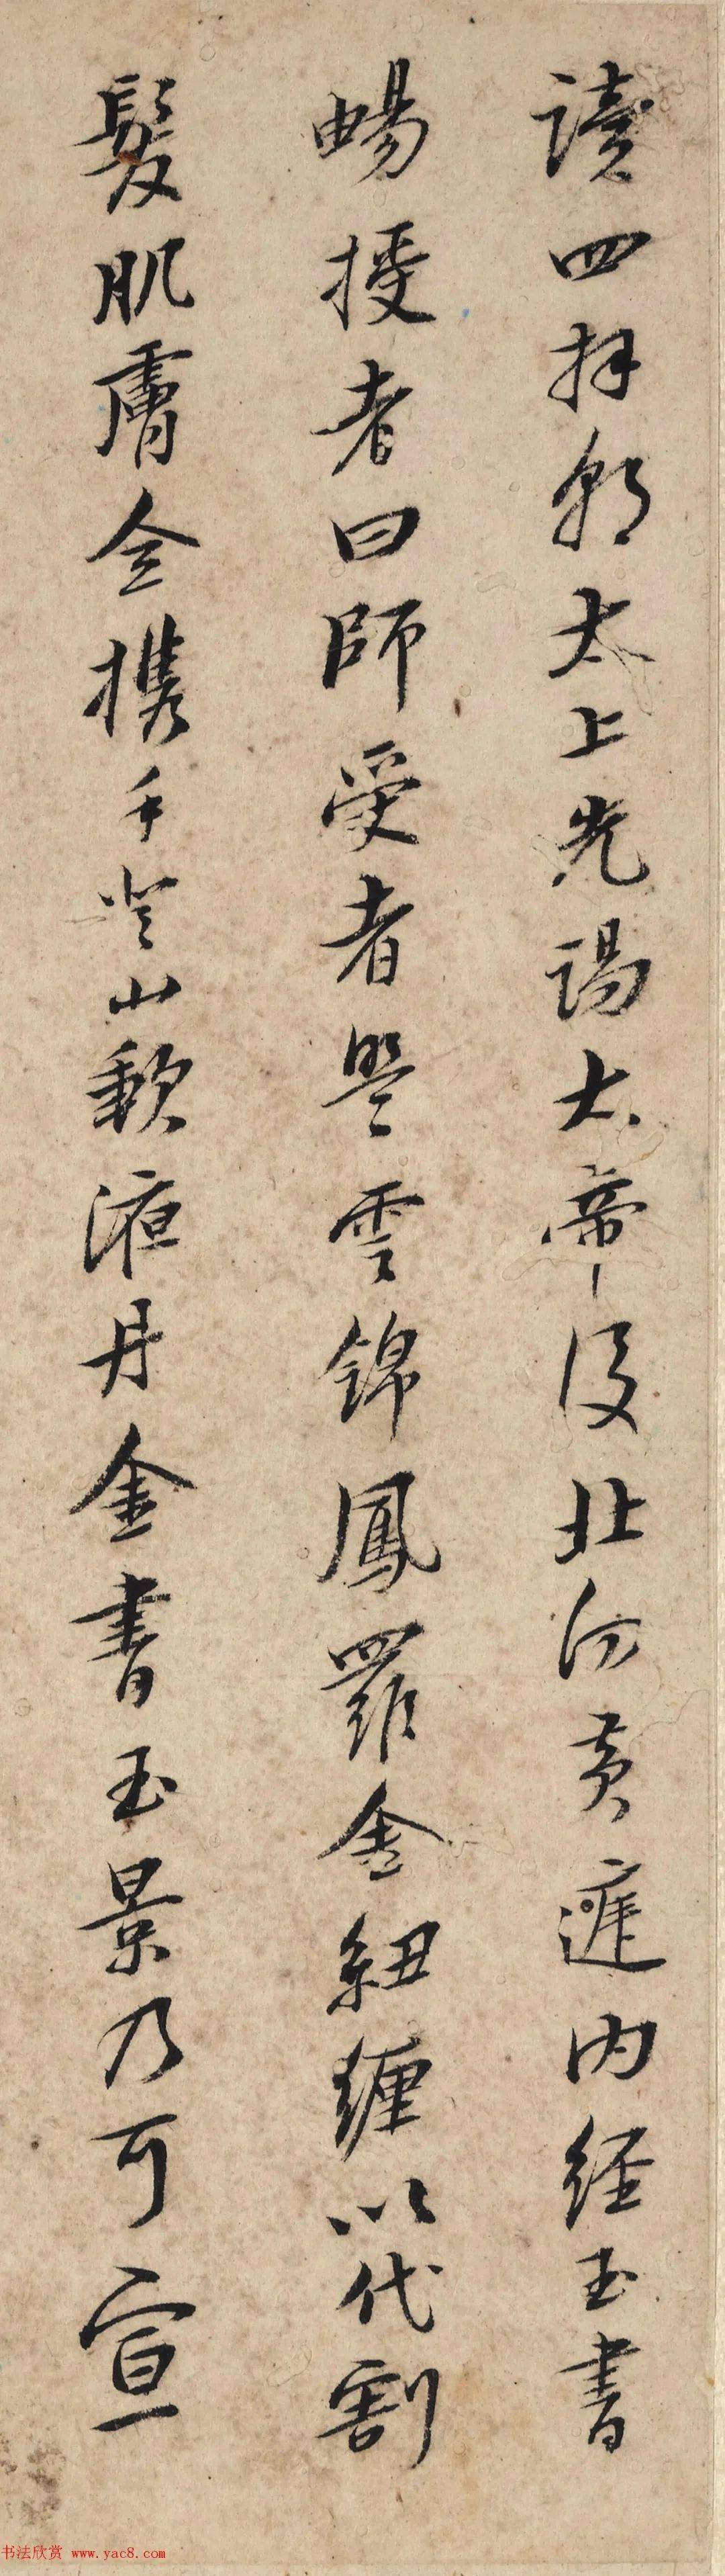 讀四拜朝太上先謁太帝後北向黃庭內經玉書
暢授者曰師受者盟雲錦鳳羅金紐纏以代割
髮肌膚全携手登山歃液丹金書玉景乃可宣
书法欣赏 www.yac8.com